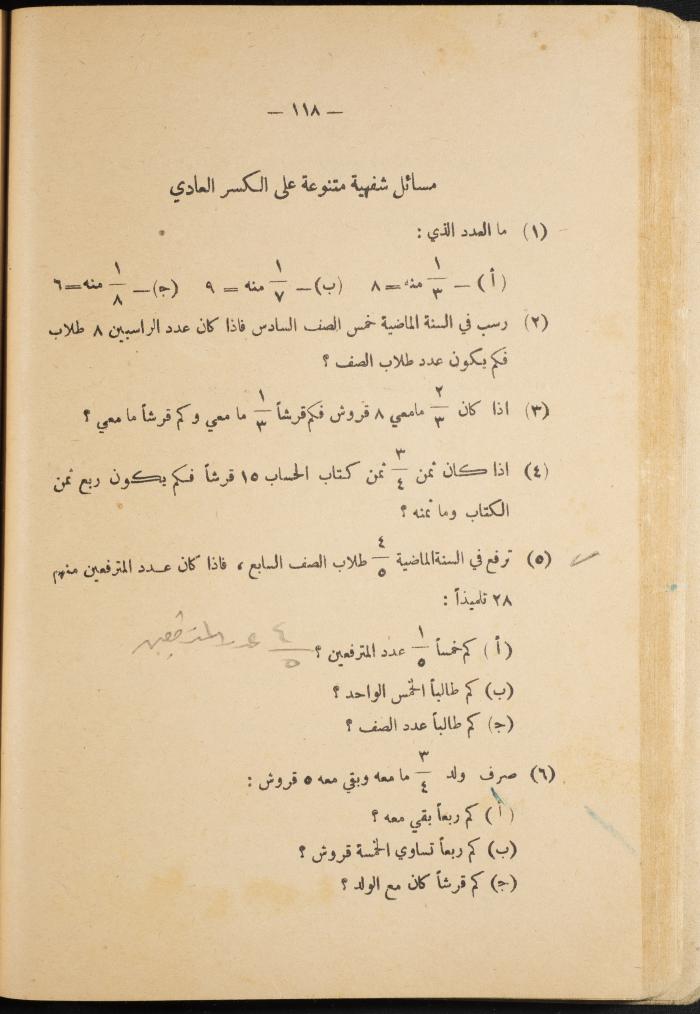 — ١١٨ —
مسائل شفهية متنوعة على الكسر العادي
(١) ما العدد الذي :
(أ) — ١/٣ منه = ٨ (ب) — ١/٧ منه = ٩ (ج) — ١/٨ منه = ٦
(٢) رسب في السنة الماضية خمس الصف السادس فاذا كان عدد الراسبين ٨ طلاب
فكم يكون عدد طلاب الصف ؟
(٣) اذا كان ٢/٣ مامعي ٨ قروش فكم قرشاً ١/٣ ما معي وكم قرشاً ما معي ؟
(٤) اذا كان ثمن ٣/٤ ثمن كتاب الحساب ١٥ قرشاً فكم يكون ربع ثمن
الكتاب وما ثمنه ؟
(٥) ترفع في السنة الماضية ٤/٥ طلاب الصف السابع ، فاذا كان عدد المترفعين منهم
٢٨ تلميذاً :
(أ) كم خمساً ١/٥ عدد المترفعين ؟ ٤/٥ عدد المترفعين
(ب) كم طالباً الخمس الواحد ؟
(ج) كم طالباً عدد الصف ؟
(٦) صرف ولد ٣/٤ ما معه وبقي معه ٥ قروش :
(أ) كم ربعاً بقي معه ؟
(ب) كم ربعاً تساوي الخمسة قروش ؟
(ج) كم قرشاً كان مع الولد ؟